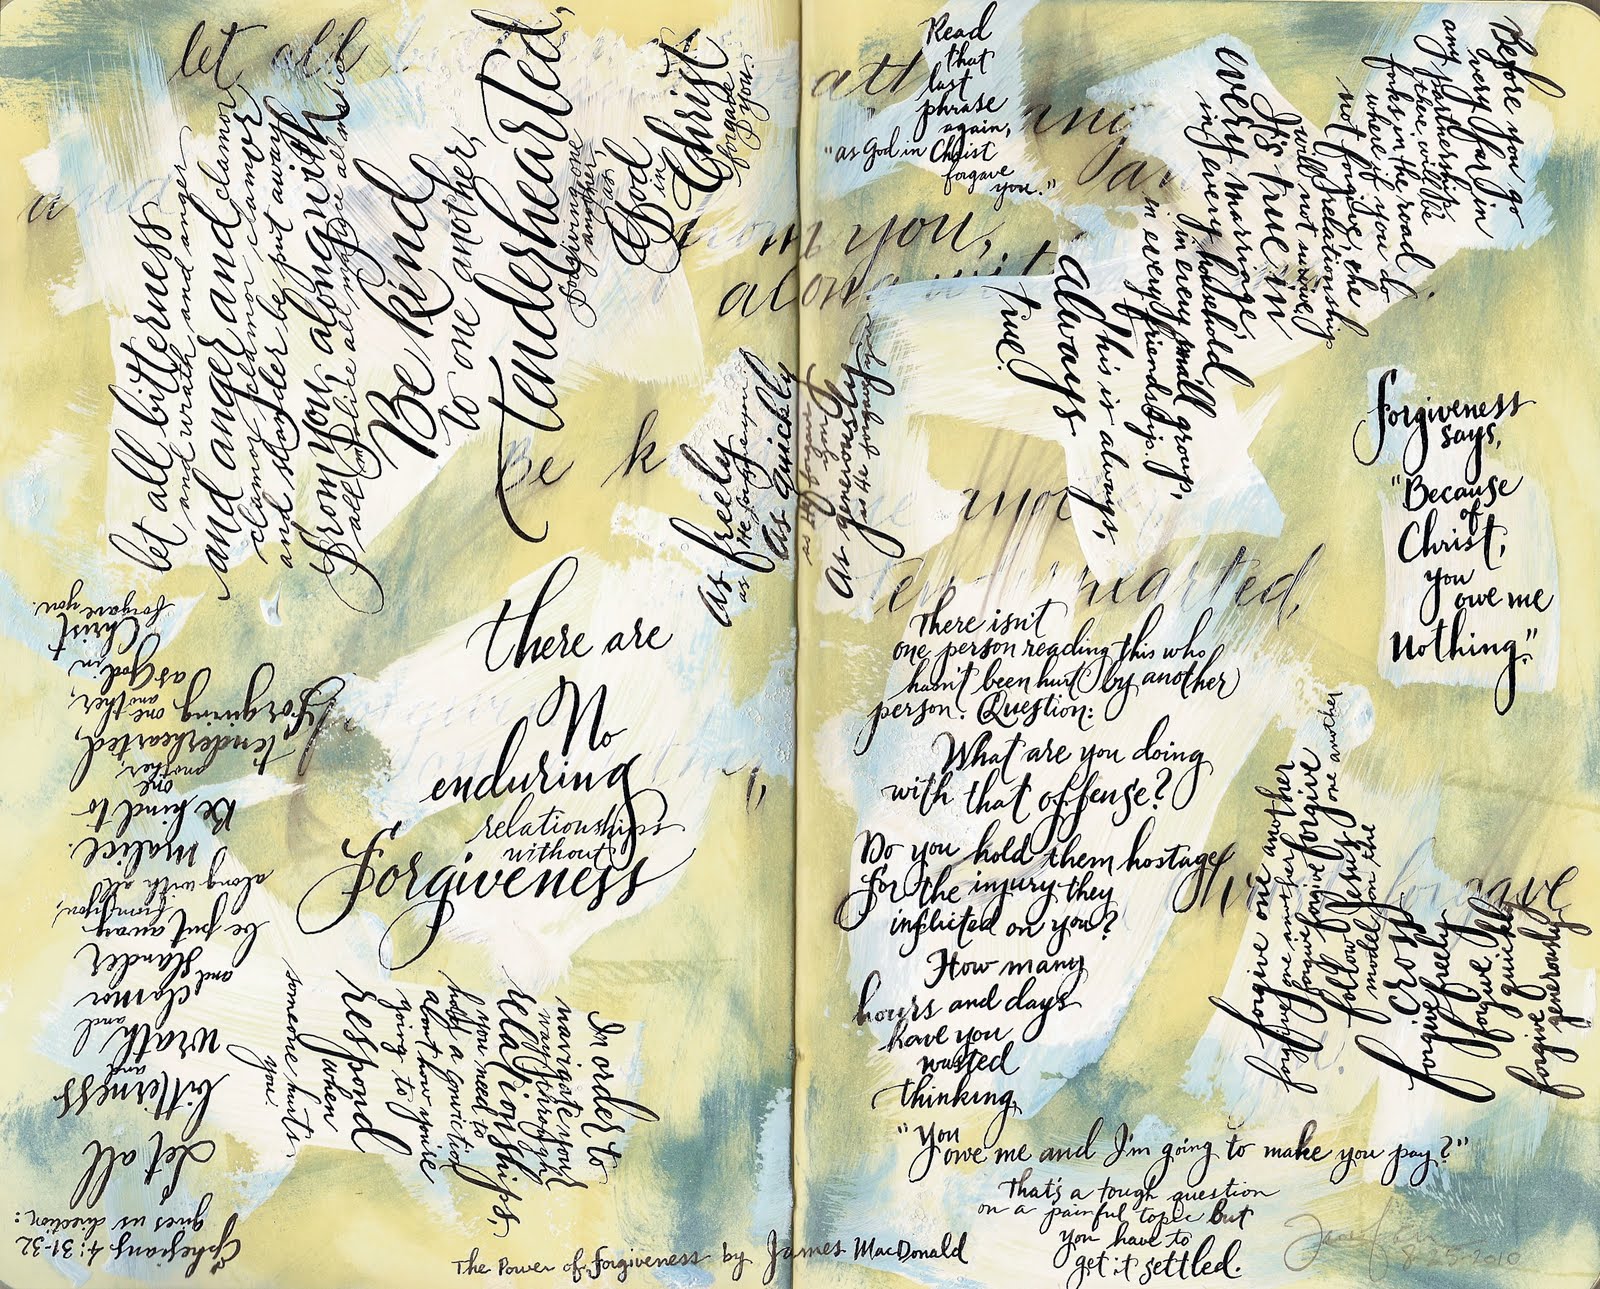 let all bitterness
and wrath and anger
and anger and clamor
clamor clamor
and slander be put away
from you along with
all malice all malice
Be kind
to one another,
tenderhearted,
forgiving one
another,
as
God
in
Christ
forgave
you
let all
Be k
there are
No
enduring
relationships
without
Forgiveness
As freely
as He forgave you
As quickly
as He forgave
you
As generously
as He forgave you
Ephesians 4:31-32
gives us direction:
Let all
bitterness
and
wrath
and
clamor
and
slander
be put away
from you,
along with all
malice.
Be kind to
one
another,
tenderhearted,
forgiving one
another,
as God in
Christ
forgave you.
In order to
navigate your
way through
relationships,
you need to
have a conviction
about how you're
going to
respond
when
someone hurts
you.
The Power of Forgiveness by James MacDonald
Read
that
last
phrase
again,
"as God in Christ
forgave
you."
and
you,
along
Before you go
very far in
any partnership
there will be
forks in the road
where if you do
not forgive, the
relationship
will not survive.
It's true in
every marriage,
in every household
in every small group,
in every friendship.
This is always,
always
true.
Forgiveness
says,
"Because
of
Christ,
you
owe me
nothing."
There isn't
one person reading this who
hasn't been hurt by another
person. Question:
What are you doing
with that offense?
Do you hold them hostage
for the injury they
inflicted on you?
How many
hours and days
have you
wasted
thinking,
"You
owe me and I'm going to make you pay?"
That's a tough question
on a painful topic but
you have to
get it settled.
forgive one another
forgive one another
forgive forgive forgive
follow Jesus' one another
model on the
cross
forgive freely
forgive quickly
forgive generously
8-25-2010